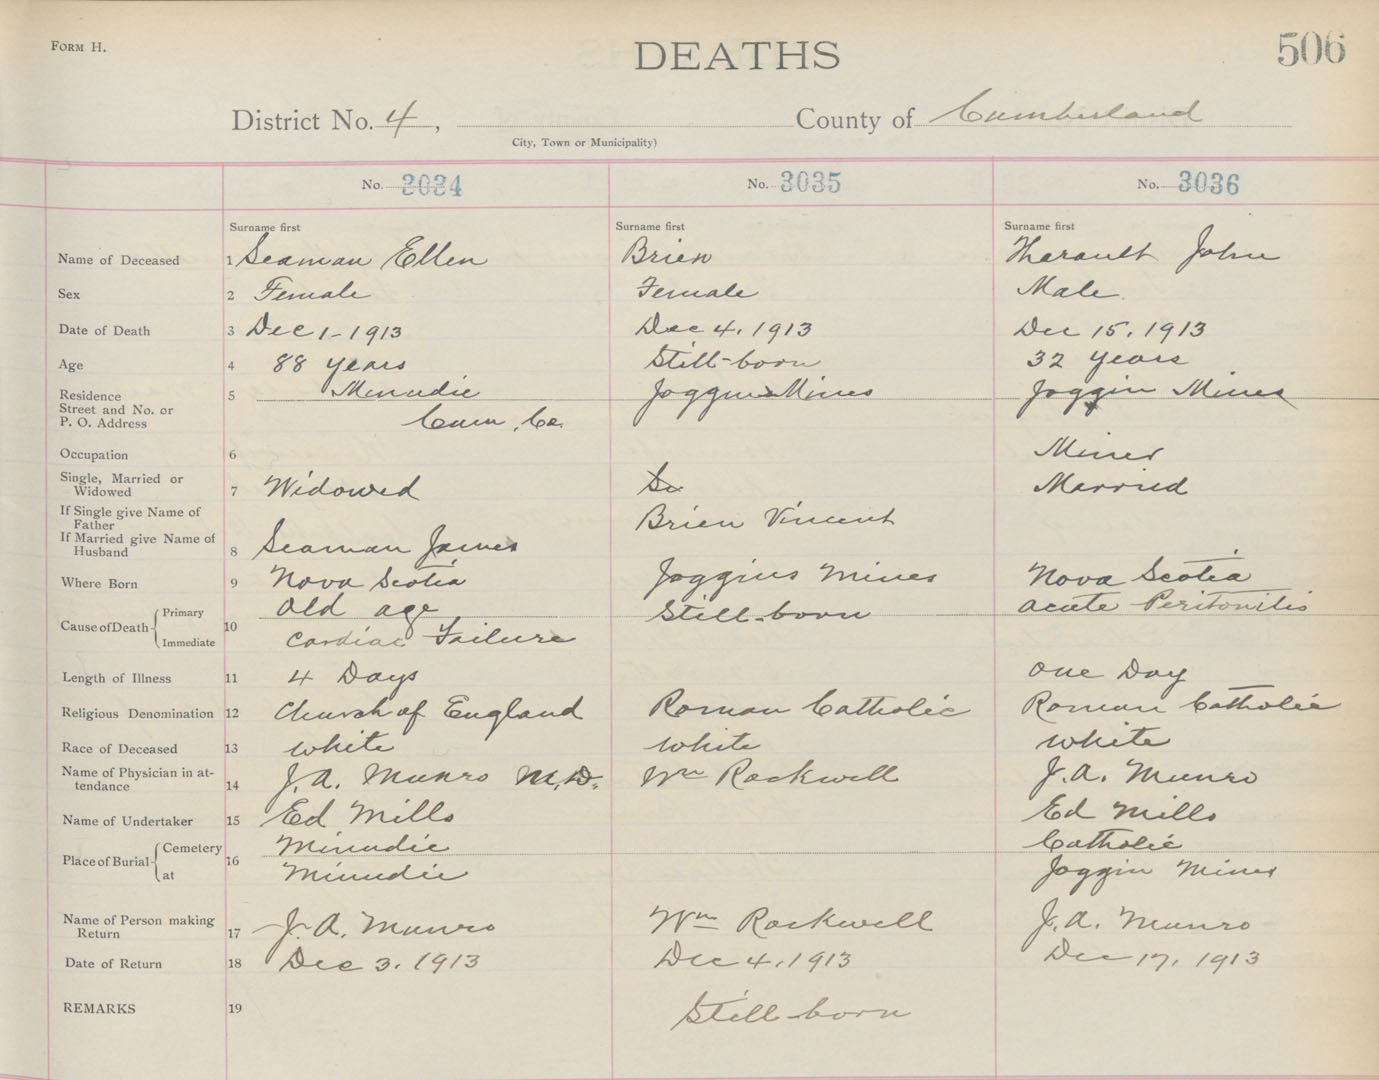 FORM H.
DEATHS
506
District No. 4, County of Cumberland
City, Town or Municipality)
No. 3034 No. 3035 No. 3036
Surname first Surname first Surname first
Name of Deceased 1 Seaman Ellen Brien Therault John
Sex 2 Female Female Male
Date of Death 3 Dec 1-1913 Dec 4, 1913 Dec 15, 1913
Age 4 88 years Still-born 32 years
Residence 5 Minudie Joggins Mines Joggin Mines
Street and No. or
P. O. Address Cum. Co.
Occupation 6 Miner
Single, Married or
Widowed 7 Widowed Married
If Single give Name of
Father Brien Vincent
If Married give Name of
Husband 8 Seaman James
Where Born 9 Nova Scotia Joggins Mines Nova Scotia
Cause of Death Primary 10 Old age Still-born Acute Peritonitis
Immediate Cardiac Failure
Length of Illness 11 4 Days One Day
Religious Denomination 12 Church of England Roman Catholic Roman Catholic
Race of Deceased 13 White White White
Name of Physician in at-
tendance 14 J. A. Munro M.D. Wm Rockwell J. A. Munro
Name of Undertaker 15 Ed Mills Ed Mills
Place of Burial Cemetery 16 Minudie Catholic
at Minudie Joggin Mines
Name of Person making
Return 17 J. A. Munro Wm Rockwell J. A. Munro
Date of Return 18 Dec 3, 1913 Dec 4, 1913 Dec 17, 1913
REMARKS 19 Still-born